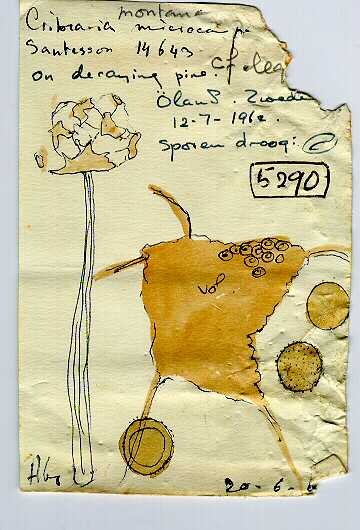 montana
Cribraria microcarpa
Santesson 14643
on decaying pine. cf eleg
Öland. Zweden
12-7-1962.
Sporen droog:
5290
vol.
Hbg
20-6-6